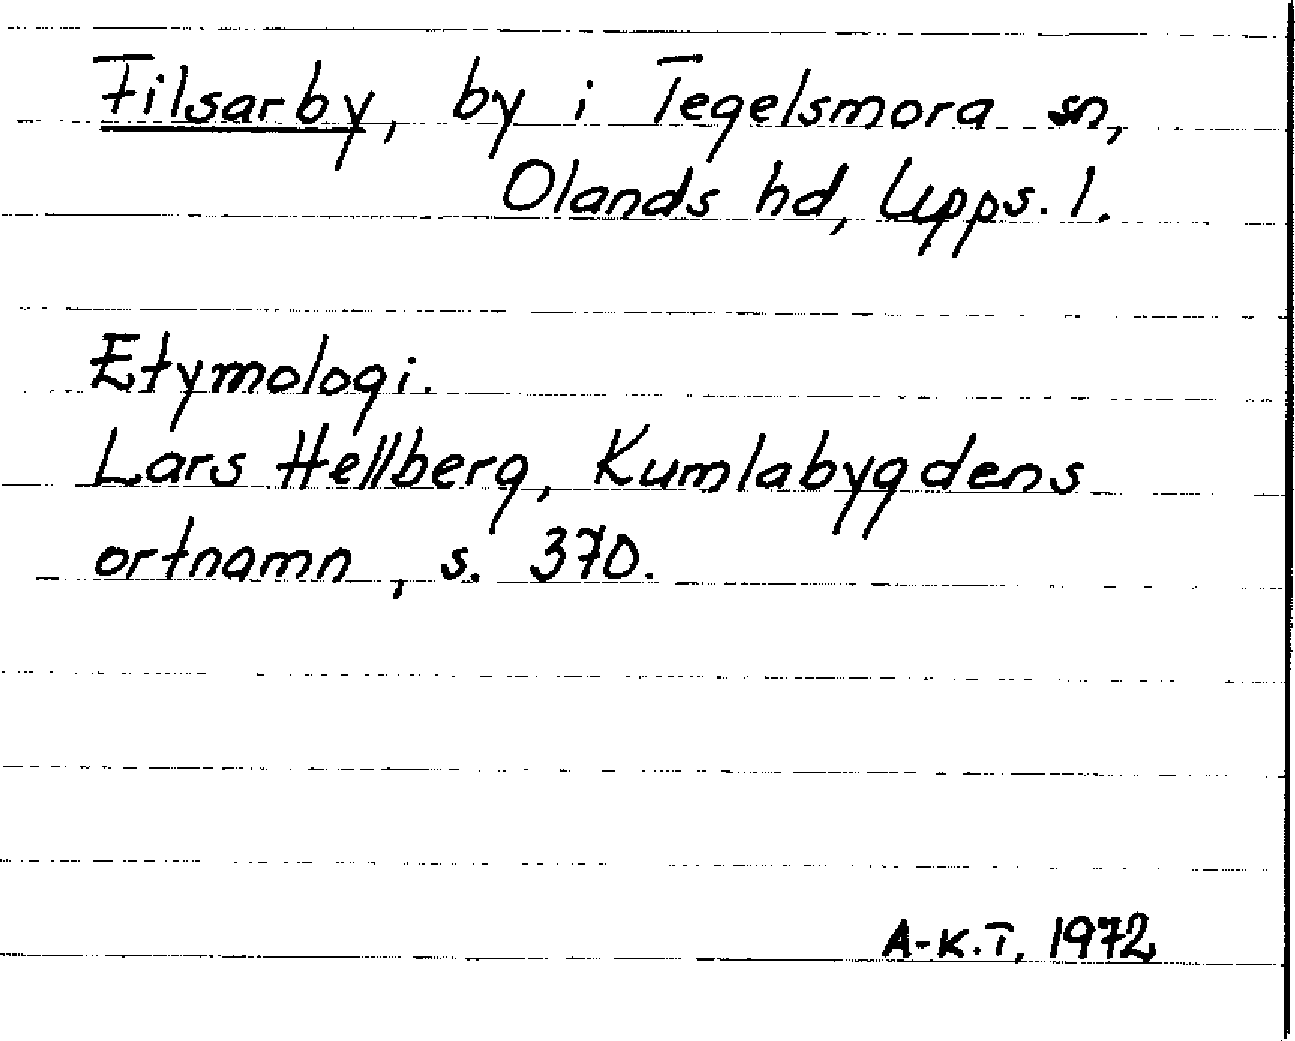 Filsarby, by i Tegelsmora sn,
Olands hd, Upps. l.
Etymologi.
Lars Hellberg, Kumlabygdens
ortnamn, s. 370.
A-K.T, 1972